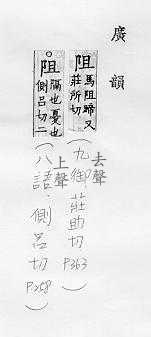 廣韻
阻 馬阻蹄又
莊所切
(去聲 九御 莊助切 P363)
阻 隔也憂也
側呂切二
(上聲 八語 側呂切 P258)